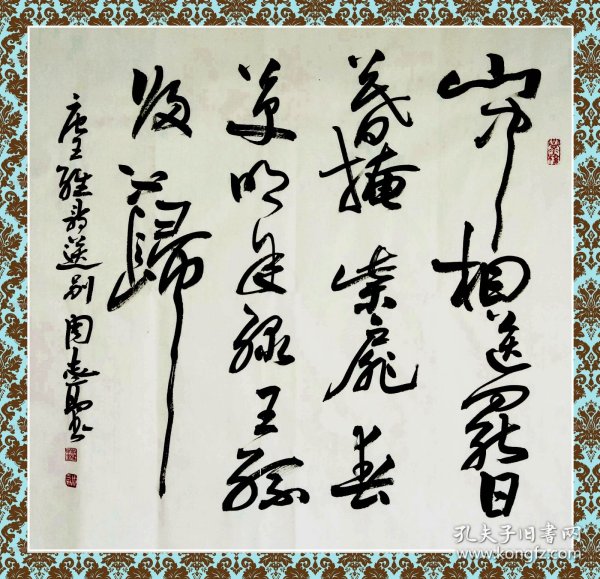 山中相送罷日
暮掩柴扉春
草明年綠王孫
歸不歸
唐王維詩送别周志高书
孔夫子旧书网
www.kongfz.com